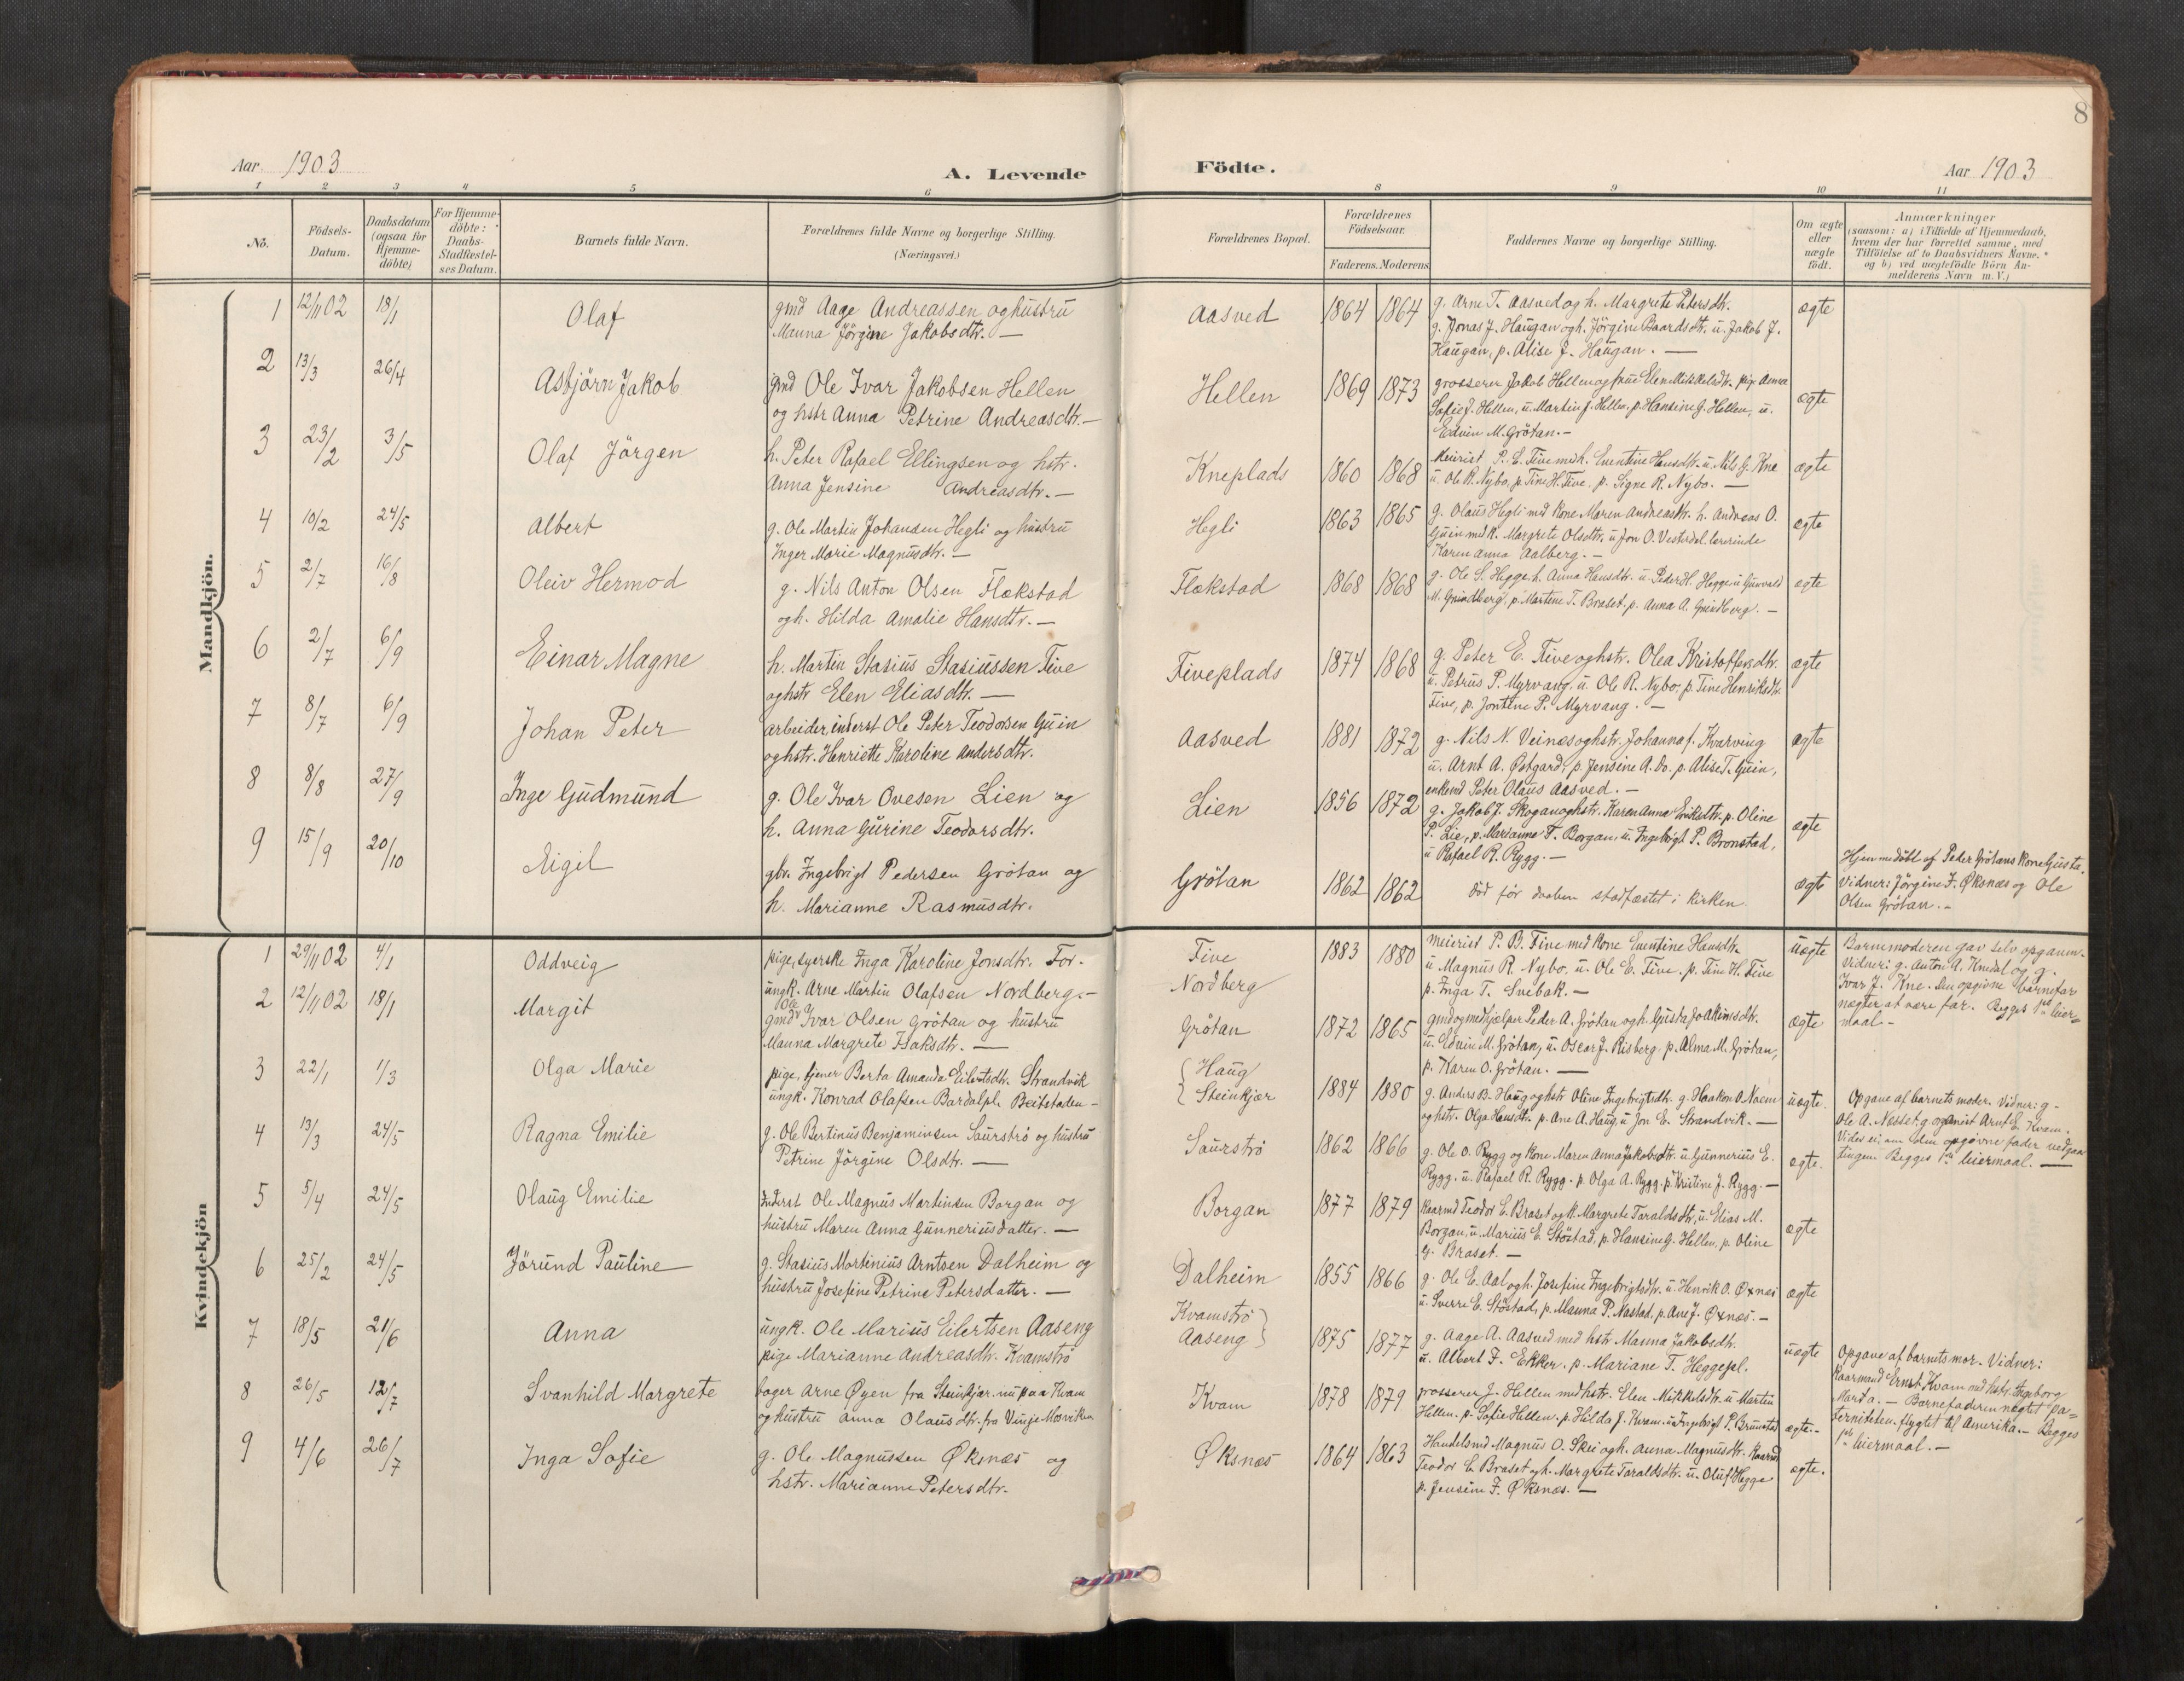 8
Aar 1903
A. Levende
Födte.
Aar 1903
1 2 3 4 5 6 8 9 10 11
No.
Födsels-Datum.
Daabsdatum (ogsaa for Hjemme-döbte)
For Hjemme-döbte: Daabs-Stadfæstel-ses Datum.
Barnets fulde Navn.
Forældrenes fulde Navne og borgerlige Stilling. (Næringsvei.)
Forældrenes Bopæl.
Forældrenes Födselsaar.
Faderens. Moderens.
Faddernes Navne og borgerlige Stilling.
Om ægte eller uægte födt.
Anmærkninger
(saasom: a) i Tilfælde af Hjemmedaab,
hvem der har forrettet samme, med
Tilföielse af to Daabsvidners Navne.
og b) ved uægtefödte Börn An-
melderens Navn m. V.)
Mandkjön.
1 12/11 02 18/1 Olaf
gmd Aage Andreassen og hustru
Manna Jörgine Jakobsdtr. —
Aasved 1864 1864
g. Arne T. Aasved og h. Margrete Petersdtr.
g. Jonas J. Haugan og h. Jörgine Baardsdtr. u. Jakob J.
Haugan, p. Alise J. Haugan. —
ægte
2 13/3 26/4 Asbjörn Jakob
gmd Ole Ivar Jakobsen Hellen
og hstr Anna Petrine Andreasdtr. —
Hellen 1869 1873
grosserer Jakob Hellen og frue Elen Mikkelsdtr. pige Anna
Sofie J. Hellen, u. Martin J. Hellen, p. Hansine G. Hellen, u.
Edvin M. Grötan. —
ægte
3 23/2 3/5 Olaf Jörgen
h. Peter Rafael Ellingsen og hstr.
Anna Jensine Andreasdtr. —
Kneplads 1860 1868
Meierist P. E. Five med h. Eventine Hansdtr. u. Nils G. Kne
u. Ole R. Nybo, p. Tine H. Five. p. Signe R. Nybo. —
ægte
4 10/2 24/5 Albert
g. Ole Martin Johansen Hegli og hustru
Inger Marie Magnusdtr. —
Hegli 1863 1865
g. Olaus Hegli md kone Maren Andreasdtr. h. Andreas O.
Guin md k. Margrete Olsdtr. u. Jon O. Vesterdal. lærerinde
Karen Anna Aalberg. —
ægte
5 2/7 16/8 Oleiv Hermod
g. Nils Anton Olsen Flekstad
og h. Hilda Amalie Hansdtr. —
Flekstad 1868 1868
g. Ole S. Hegge, h. Anna Hansdtr. u. Peder H. Hegge u. Gunvald
M. Grindberg, p. Martine T. Braset, p. Anna A. Grindberg. —
ægte
6 2/7 6/9 Einar Magne
h. Martin Stasius Stasiussen Five
og hstr Elen Eliasdtr. —
Fiveplads 1874 1868
g. Peter E. Five og hstr. Olea Kristoffersdtr.
u. Petrus P. Myrvang, u. Ole R. Nybo, p. Tine Henriksdtr.
Five, p. Jontine P. Myrvang. —
ægte
7 8/7 6/9 Johan Peter
arbeider, inderst Ole Peter Teodorsen Guin
og hstr. Henriette Karoline Andersdtr.
Aasved 1881 1872
g. Nils N. Veines og hstr. Johanna f. Kvarving
u. Arnt A. Østgard, p. Jensine A. Do. p. Alise T. Guin,
enkemd Peter Olaus Aasved. —
ægte
8 8/8 27/9 Inge Gudmund
g. Ole Ivar Ovesen Lien og
h. Anna Gurine Teodorsdtr.
Lien 1856 1872
g. Jakob J. Skogan og hstr. Karen Anna Eriksdtr. p. Oline
P. Lie, p. Marianne F. Borgan, u. Ingebrigt P. Bronstad,
u. Rafael R. Rygg. —
ægte
9 15/9 20/10 Eigil
gbr. Ingebrigt Pedersen Grötan og
h. Marianne Rasmusdtr.
Grötan 1862 1862
död för daaben stadfæstet i kirken.
ægte
Hjemmedöbt af Peder Grötans kone Gusta.
Vidner: Jörgine F. Øksnæs og Ole
Olsen Grötan. —
Kvindekjön
1 29/11 02 4/1 Oddveig
pige, syerske Inga Karoline Jonsdtr. For.
ungk. Arne Martin Olafsen Nordberg. —
Five
Nordberg
1883 1880
Meierist P. B. Five med kone Eventine Hansdtr.
u. Magnus R. Nybo, u. Ole E. Five, p. Tine H. Five
p. Inga T. Svebak. —
uægte
Barnemoderen gav selv opgaven.
Vidner: g. Anton A. Knedal og g.
Ivar J. Kne. Den opgivne barnefar
nægter at være far. Begges 1ste leier=
maal —
2 12/11 02 18/1 Margit
gmd Ole Ivar Olsen Grötan og hustru
Manna Margrete Isaksdtr. —
Grötan 1872 1865
gmd og medhjælper Peder A. Grötan og h. Gusta Joakimsdtr.
u. Edvin M. Grötan, u. Oscar J. Risberg, p. Alma M. Grötan,
p. Karen O. Grötan. —
Ægte
3 22/1 1/3 Olga Marie
pige, tjener Berta Amanda Eilertsdtr. Strandvik
ungk. Konrad Olafsen Bardalpl. Beitstaden —
Haug
Steinkjær
1884 1880
g. Anders B. Haug og hstr Oline Ingebrigtsdtr. g. Haakon O. Naem
og hstr. Olga Hansdtr. p. Ane A. Haug, u. Jon E. Strandvik. —
uægte.
Opgave af barnets moder. Vidner: g —
Ole A. Næsset, g. organist Arnt E. Kvam.
Vides ei, om den opgivne fader vedgaar
tingen. Begges 1ste leiermaal. —
4 13/3 24/5 Ragna Emilie
g. Ole Bertinus Benjaminsen Saurströ og hustru
Petrine Jörgine Olsdtr. —
Saurströ 1862 1866
g. Ole O. Rygg og kone Maren Anna Jakobsdtr. u. Gunnerius E.
Rygg. u. Rafael R. Rygg. p. Olga A. Rygg. p. Kristine J. Rygg. —
ægte.
5 5/4 24/5 Olaug Emilie
Inderst Ole Magnus Martinsen Borgan og
hustru Maren Anna Gunneriusdatter. —
Borgan 1877 1879
Kaarmd Teodor L. Braset og k. Margrete Taraldsdtr, u. Elias M.
Borgan, u. Marius E. Stöstad, p. Hansine G. Hellen, p. Oline
G. Braset. —
ægte
6 25/2 24/5 Jörund Pauline
g. Stasius Mortinius Arntsen Dalheim og
hustru Josefine Petrine Petersdatter. —
Dalheim 1855 1866
g. Ole E. Aal og h. Josefine Ingebrigtsdtr. u. Henrik O. Øxnes
u. Sverre E. Stöstad, p. Manna P. Nastad, p. Ane J. Øxnes. —
ægte
7 18/5 21/6 Anna
ungk. Ole Marius Eilertsen Aaseng
pige Marianne Andreasdtr. Kvamströ
Kvamströ
Aaseng
1875 1877
g. Aage A. Aasved med hstr Manna Jakobsdtr.
u. Albert F. Ekker. p. Mariane T. Heggesel.
uægte
Opgave af barnets mor. Vidner:
Kaarmand Ernst Kvam med hstr. Ingeborg
Marta. — Barnefaderen nægtet pa=
terniteten. flygtet til Amerika. — Begges
1ste leiermaal. —
8 26/5 12/7 Svanhild Margrete
bager Arne Øyen fra Steinkjær. nu paa Kvam
og hustru Anna Olausdtr. fra Vinje Mosviken.
Kvam 1878 1879
grosserer J. Hellen med hstr. Elen Mikkelsdtr. u. Martin
Hellen. p. Sofie Hellen. p. Hilda J. Kvam. u. Ingebrigt P. Brunstad
ægte. —
9 4/6 26/7 Inga Sofie
g. Ole Magnussen Øksnæs og
hstr. Marianne Petersdtr.
Øksnæs 1864 1863
Handelsmd Magnus O. Skei og h. Anna Magnusdtr. Kaarmd
Teodor L. Braset og h. Margrete Taraldsdtr. u. Oluf Hegge
p. Jensine F. Øksnæs. —
ægte.